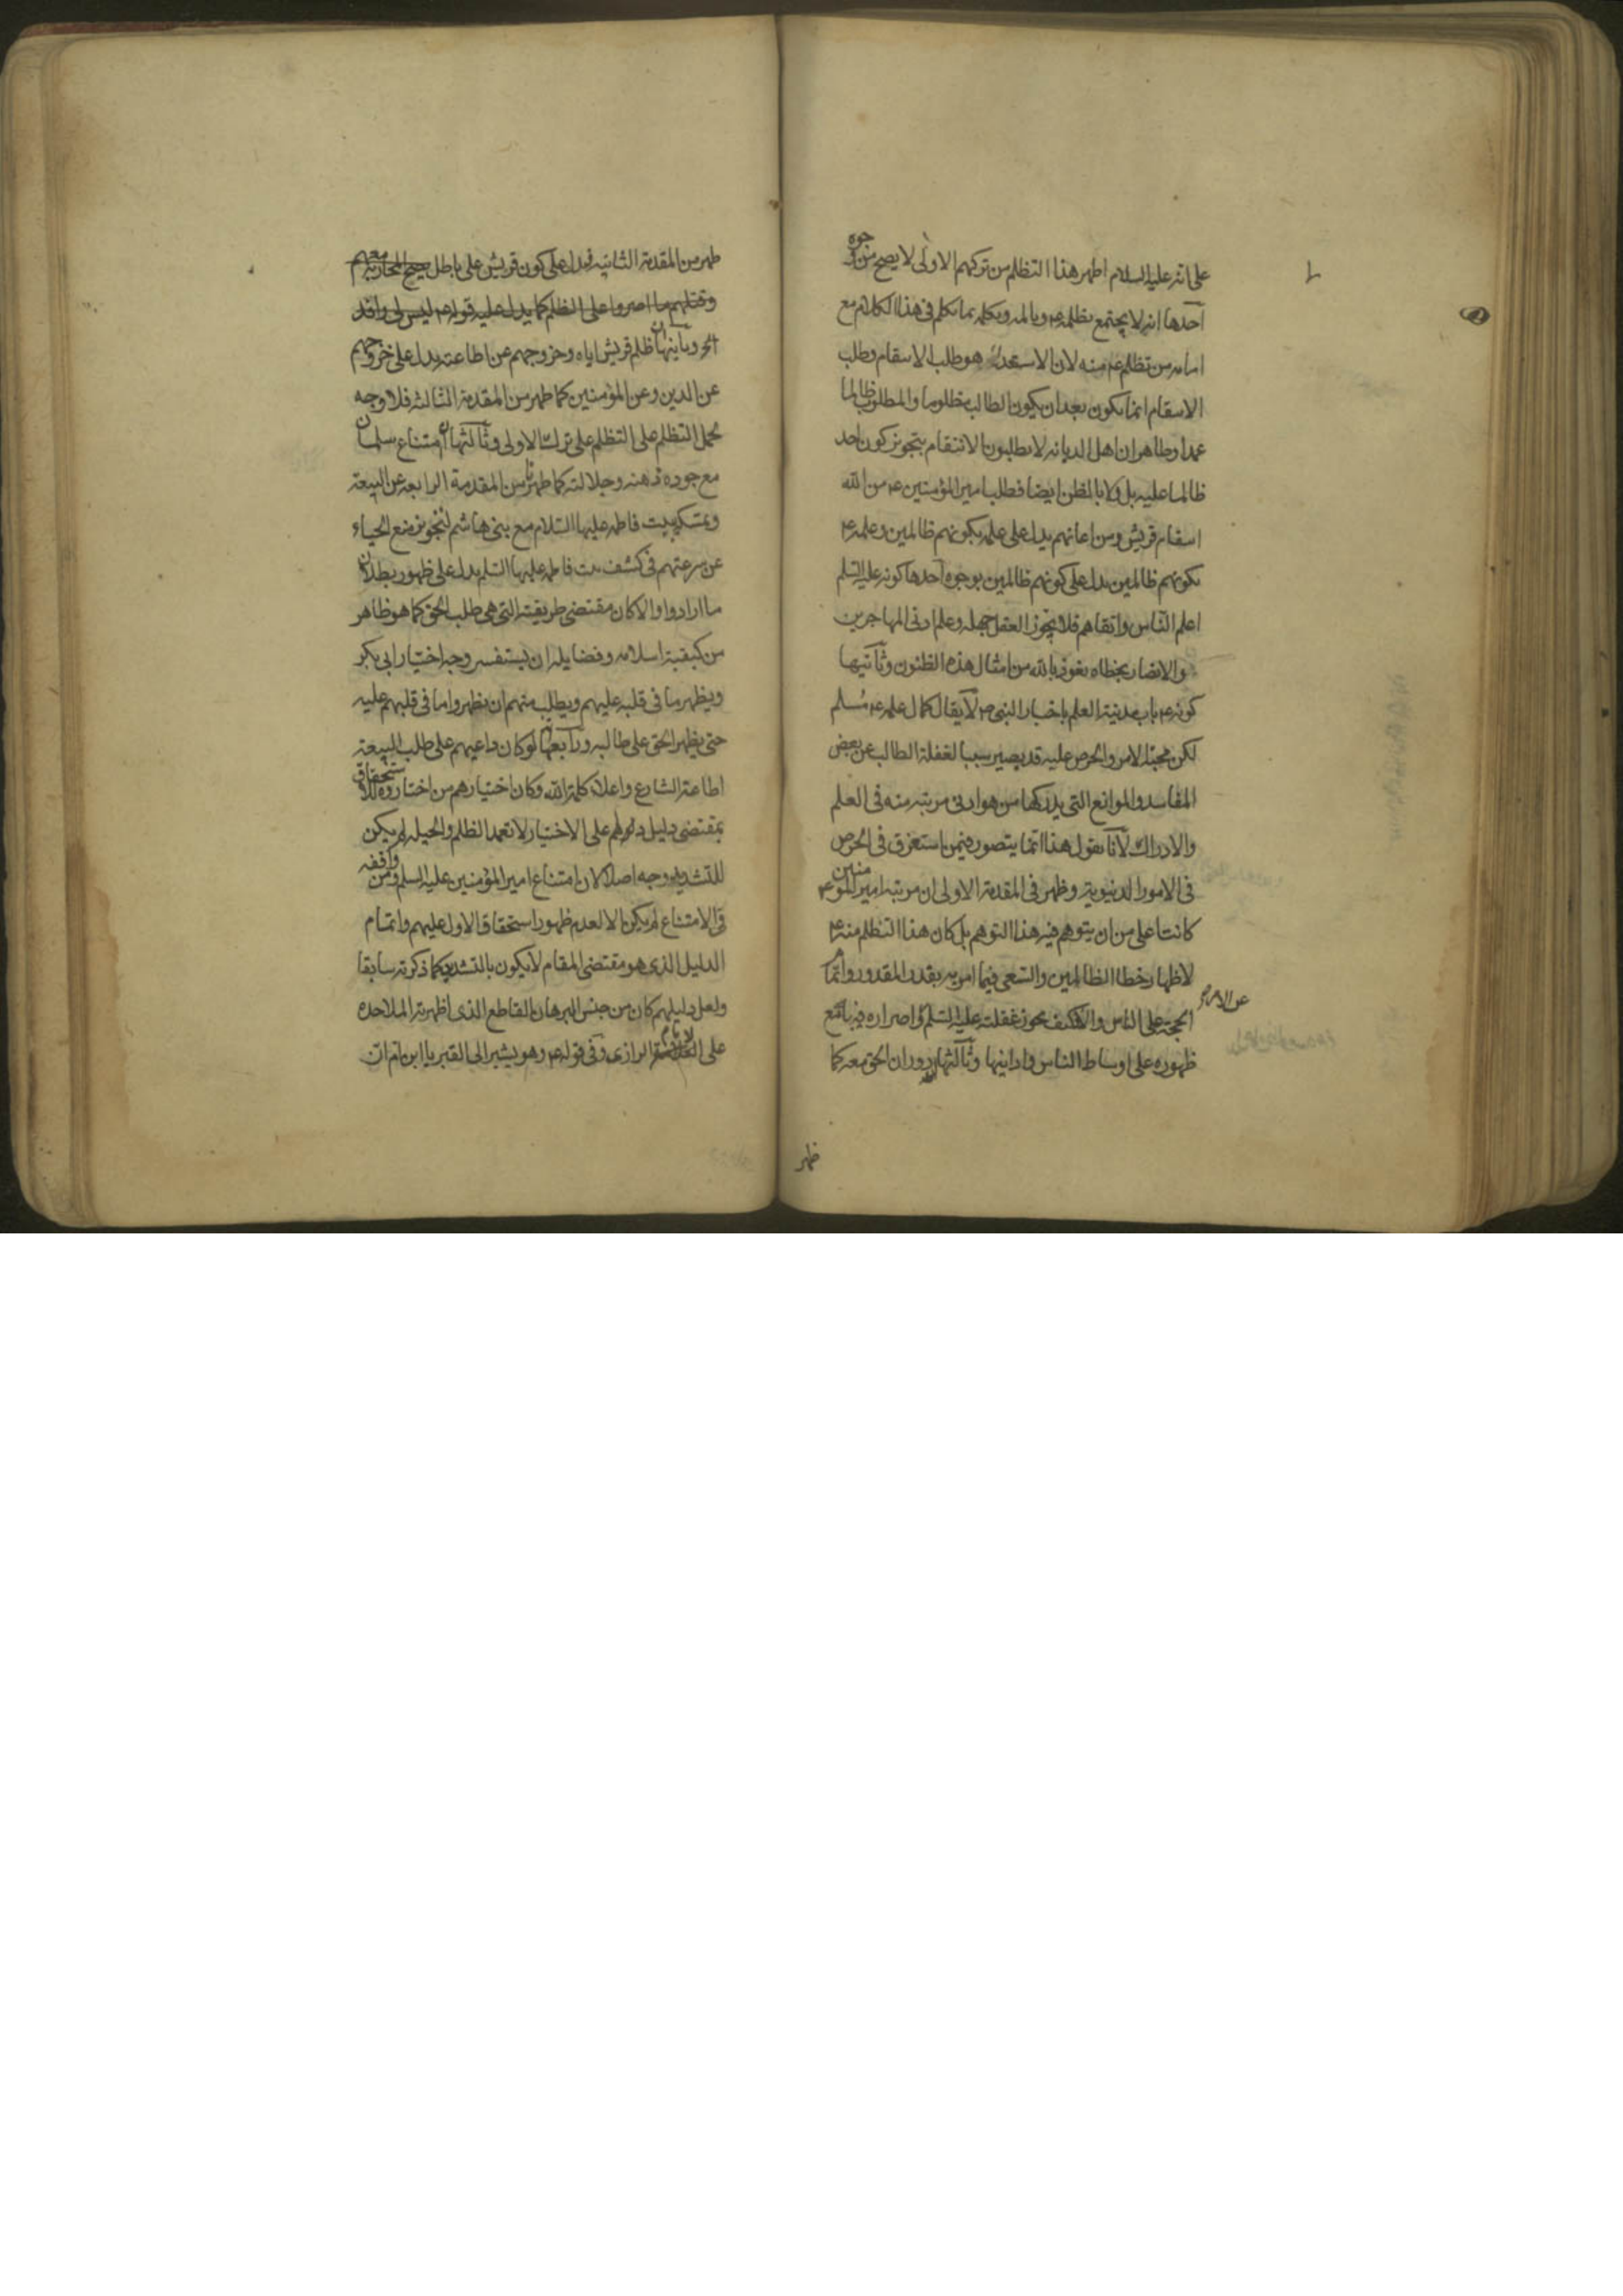 على انه عليه السلام اظهر هذا التظلم من تركهم الاولى لا يصح من وجوه
آحدها انه لا يجتمع تظلمه ع وتألمه وتكلمه بما تكلم في هذا الكلام مع
منه لان الاستعداء هو طلب الانتقام وطلب
الانتقام انما يكون بعد ان يكون الطالب مظلوما والمطلوب ظالما
عمدا وظاهر ان اهل الديانه لا يطلبون الانتقام بتجويز كون احد
ظالما عليه بل ولا بالظن ايضا فطلب امير المؤمنين ع من الله
انتقام قريش ومن اعانهم يدل على علمه بكونهم ظالمين وعلمه ع
بكونهم ظالمين يدل على كونهم ظالمين بوجوه احدها كونه عليه السلم
اعلم الناس واتقاهم فلا يجوز العقل جهله وعلم ادنى المهاجرين
والانصار بخطاه نعوذ بالله من امثال هذه الظنون وثآنيها
كونه ع باب مدينة العلم باخبار النبي ص لآ يقال كمال علمه ع مسلم
لكن محبة الامر والحرص عليه قد يصير سببا لغفلة الطالب عن بعض
المفاسد والموانع التي يدركها من هو ادنى مرتبه منه في العلم
والادراك لآنا نقول هذا انما يتصور فيمن استغرق في الحرص
في الامور الدنيوية وظهر في المقدمة الاولى ان مرتبة امير المؤمنين ع
كانت اعلى من ان يتوهم فيه هذا التوهم بل كان هذا التظلم منه ع
لاظهار خطا الظالمين والسعي فيما امر به بقدر المقدور واتمام
عن الامر
الحجة على الناس وكيف يجوز غفلته عليه السلم واصراره فيه مع
ظهوره على اوساط الناس وادانيها وثآلثها دوران الحق معه كما
ظهر
ظهر من المقدمة الثانيه فدل على كون قريش على باطل يبيح المحاربة معهم
وقتلهم ما اصروا على الظلم كما يدل عليه قوله ع ليس لي رافد
الخ وثآنيها ان ظلم قريش اياه وخروجهم عن اطاعته يدل على خروجهم
عن الدين وعن المؤمنين كما ظهر من المقدمة الثالثه فلا وجه
لحمل التظلم على التظلم على ترك الاولى وثآلثها ان امتناع سلمان
مع جوده ذهنه وجلالته كما ظهر من المقدمة الرابعه عن البيعة
وتمسكه ببيت فاطمه عليها السلام مع بني هاشم لتجويز منع الحياء
عن سرعتهم في كشف بيت فاطمه عليها السلم يدل على ظهور بطلان
ما ارادوا والا كان مقتضى طريقته التي هي طلب الحق كما هو ظاهر
من كيفية اسلامه وفضايله ان يستفسر وجه اختيار ابي بكر
ويظهر ما في قلبه عليهم ويطلب منهم ان يظهروا ما في قلبهم عليه
حتى يظهر الحق على طالبه ورآبعها لو كان داعيهم على طلب البيعة
اطاعة الشارع واعلاء كلمة الله وكان اختيارهم من اختاروه للاستحقاق
بمقتضى دليل دلهم على الاختيار لا تعمد الظلم والحيله لم يكن
للتشديد وجه اصلا لان امتناع امير المؤمنين عليه السلم ومن وافقه
في الامتناع لم يكن الا لعدم ظهور استحقاق الاول عليهم واتمام
الدليل الذي هو مقتضى المقام لا يكون بالتشديد كما ذكرته سابقا
ولعل دليلهم كان من جنس البرهان القاطع الذي اظهرته الملاحده
على الامام الرازي وفي قوله ع وهو يشير الى القبر يا ابن ام ان